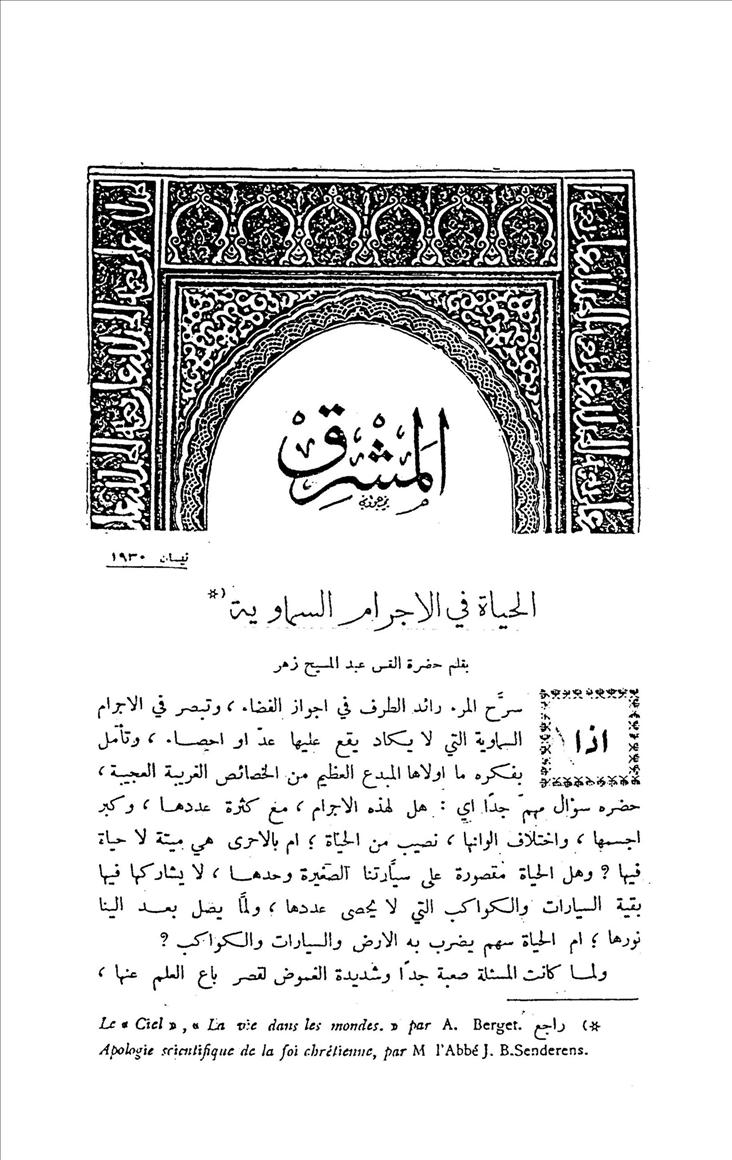 المشرق
نيسان ١٩٣٠
الحياة في الاجرام السماوية *)
بقلم حضرة القس عبد المسيح زهر
اذا سرَّح المرء رائد الطرف في اجواز الفضاء ، وتبصر في الاجرام
السماوية التي لا يكاد يقع عليها عدّ او احصاء ، وتأمل
بفكره ما اولاها المبدع العظيم من الخصائص الغريبة العجيبة ،
حضره سؤال مهمّ جدًا اي : هل لهذه الاجرام ، مع كثرة عددها ، وكبر
اجسمها ، واختلاف الوانها ، نصيب من الحياة ؛ ام بالاحرى هي ميتة لا حياة
فيها ? وهل الحياة مقصورة على سيَّارتنا الصغيرة وحدها ، لا يشاركها فيها
بقية السيارات والكواكب التي لا يحصى عددها ، ولمَّا يصل بعد الينا
نورها ؛ ام الحياة سهم يضرب به الارض والسيارات والكواكب ?
ولما كانت المسئلة صعبة جدًا وشديدة الغموض لقصر باع العلم عنها ،
*) راجع Le « Ciel » , « La vie dans les mondes. » par A. Berget.
Apologie scientifique de la foi chrétienne, par M l'Abbé J. B.Senderens.